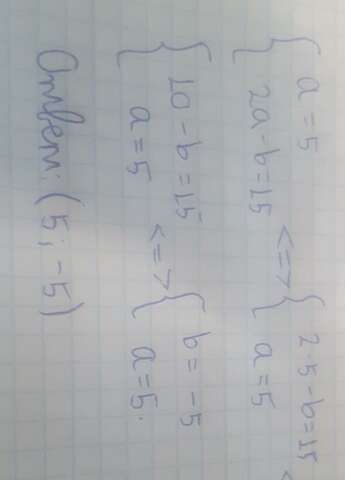 { a = 5
2a - b = 15 <=> { 2·5 - b = 15
a = 5 <
{ 10 - b = 15
a = 5 <=> { b = -5
a = 5.
Ответ: (5; -5)